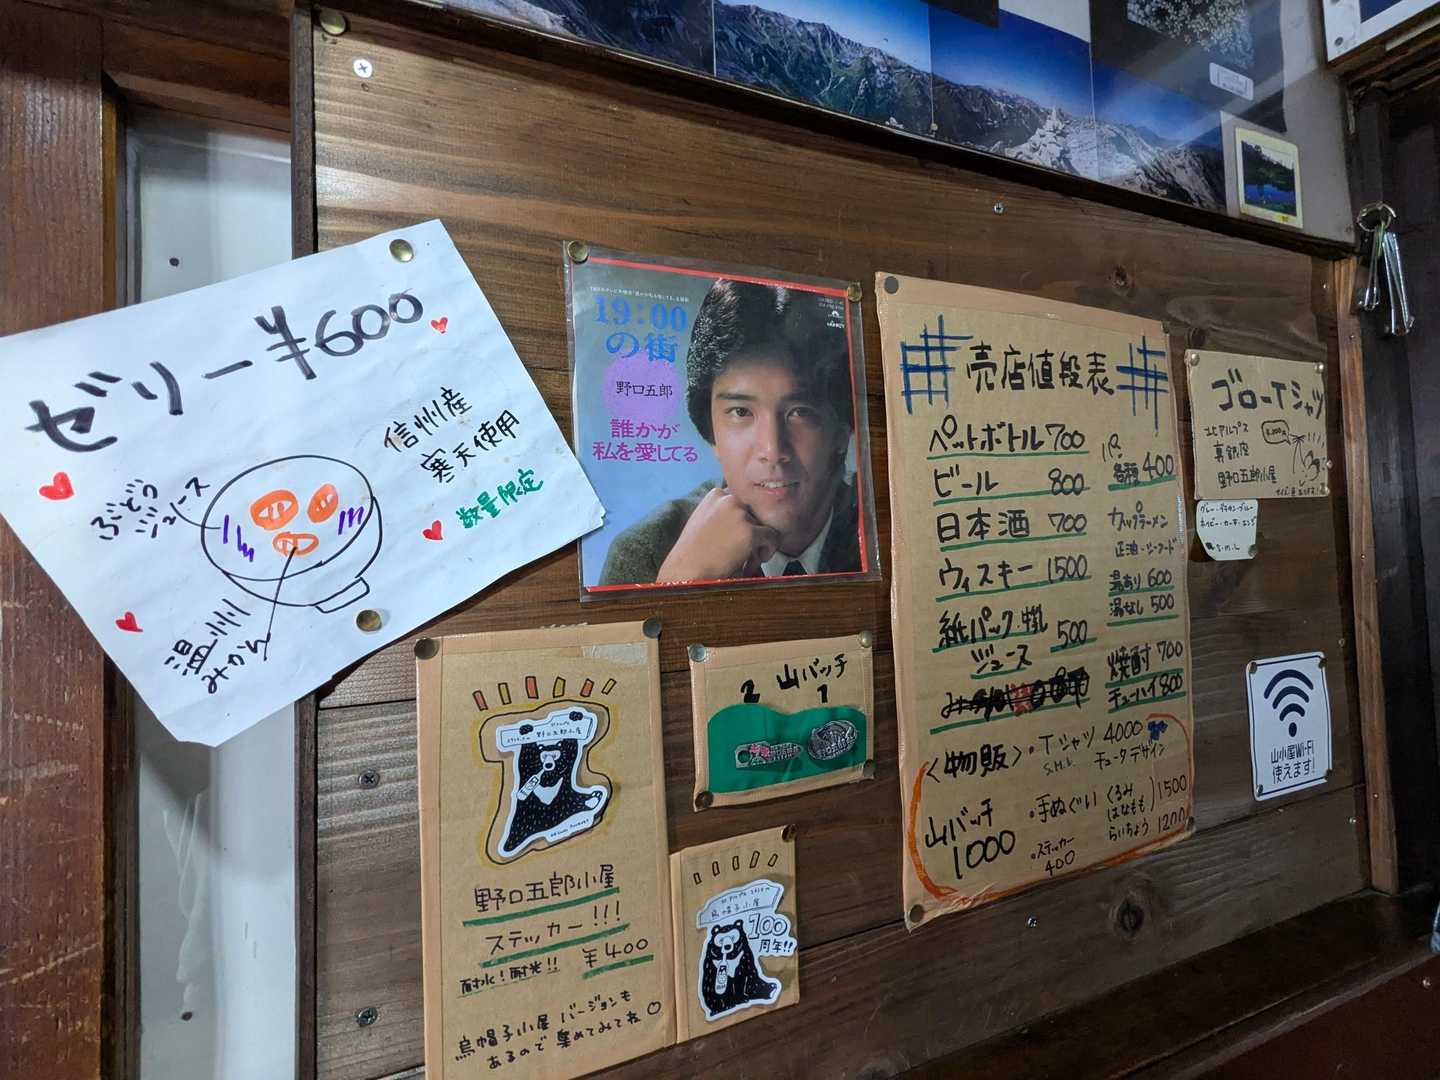 ゼリー ¥600
信州産
寒天使用
数量限定
ぶどう
ジュース
温州
みかん
19:00
の街
野口五郎
誰かが
私を愛してる
売店値段表
ペットボトル 700
ビール 800
日本酒 700
ウィスキー 1500
紙パック 牛乳
ジュース 500
各種 400
カップラーメン
湯あり 600
湯なし 500
焼酎 700
チューハイ 800
〈物販〉・Tシャツ 4000
S.M.L
山バッチ
1000
・手ぬぐい くるみ
はなもも 1500
らいちょう 1200
・ステッカー
400
ゴローTシャツ
北アルプス
真銀座
野口五郎小屋
S.M.L
山小屋Wi-Fi
使えます!
2 山バッチ 1
野口五郎小屋
野口五郎小屋
ステッカー!!!
耐水!耐光!! ¥400
烏帽子小屋 バージョンも
あるので 集めてみてね
烏帽子小屋
100
周年!!